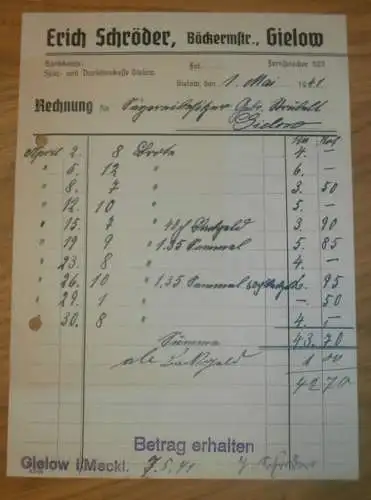 Erich Schröder, Bäckermstr., Gielow
Bankkonto:
Spar- und Darlehnskasse Gielow.
Fernsprecher
Gielow, den 1. Mai 1941
Rechnung für Sägereibesitzer Gebr.
Gielow
RM Rpf
April 2. 8 Brote 4. –
" 5. 12 " 6. –
" 8. 7 " 3. 50
" 12. 10 " 5. –
" 15. 7 " 40 3. 90
" 19. 9 " 1.35 Semmel 5. 85
" 23. 8 " 4. –
" 26. 10 " 1.35 Semmel 95
" 29. 1 " –. 50
" 30. 8 " 4. –
Summa 43. 70
1 00
42 70
Betrag erhalten
Gielow i/Meckl. 7.5.41 E. Schröder